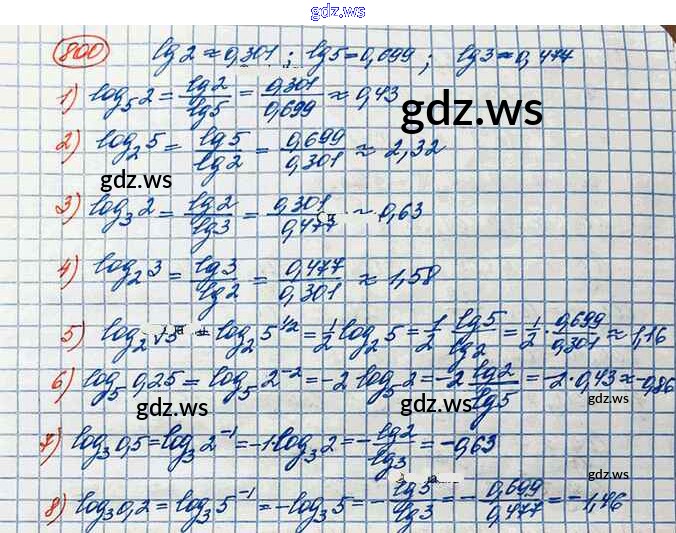 gdz.ws
800 lg2≈0,301; lg5=0,699; lg3≈0,477
1) log₅2 = lg2/lg5 = 0,301/0,699 ≈ 0,43
gdz.ws
2) log₂5 = lg5/lg2 = 0,699/0,301 ≈ 2,32
gdz.ws
3) log₃2 = lg2/lg3 = 0,301/0,477 ≈ 0,63
4) log₂3 = lg3/lg2 = 0,477/0,301 ≈ 1,58
5) log₂√5 = log₂5^1/2 = 1/2 log₂5 = 1/2 lg5/lg2 = 1/2 · 0,699/0,301 ≈ 1,16
6) log₅0,25 = log₅2⁻² = -2 log₅2 = -2 lg2/lg5 = -2·0,43 ≈ -0,86
gdz.ws gdz.ws gdz.ws
7) log₃0,5 = log₃2⁻¹ = -1·log₃2 = -lg2/lg3 = -0,63
gdz.ws
8) log₃0,2 = log₃5⁻¹ = -log₃5 = -lg5/lg3 = -0,699/0,477 = -1,46